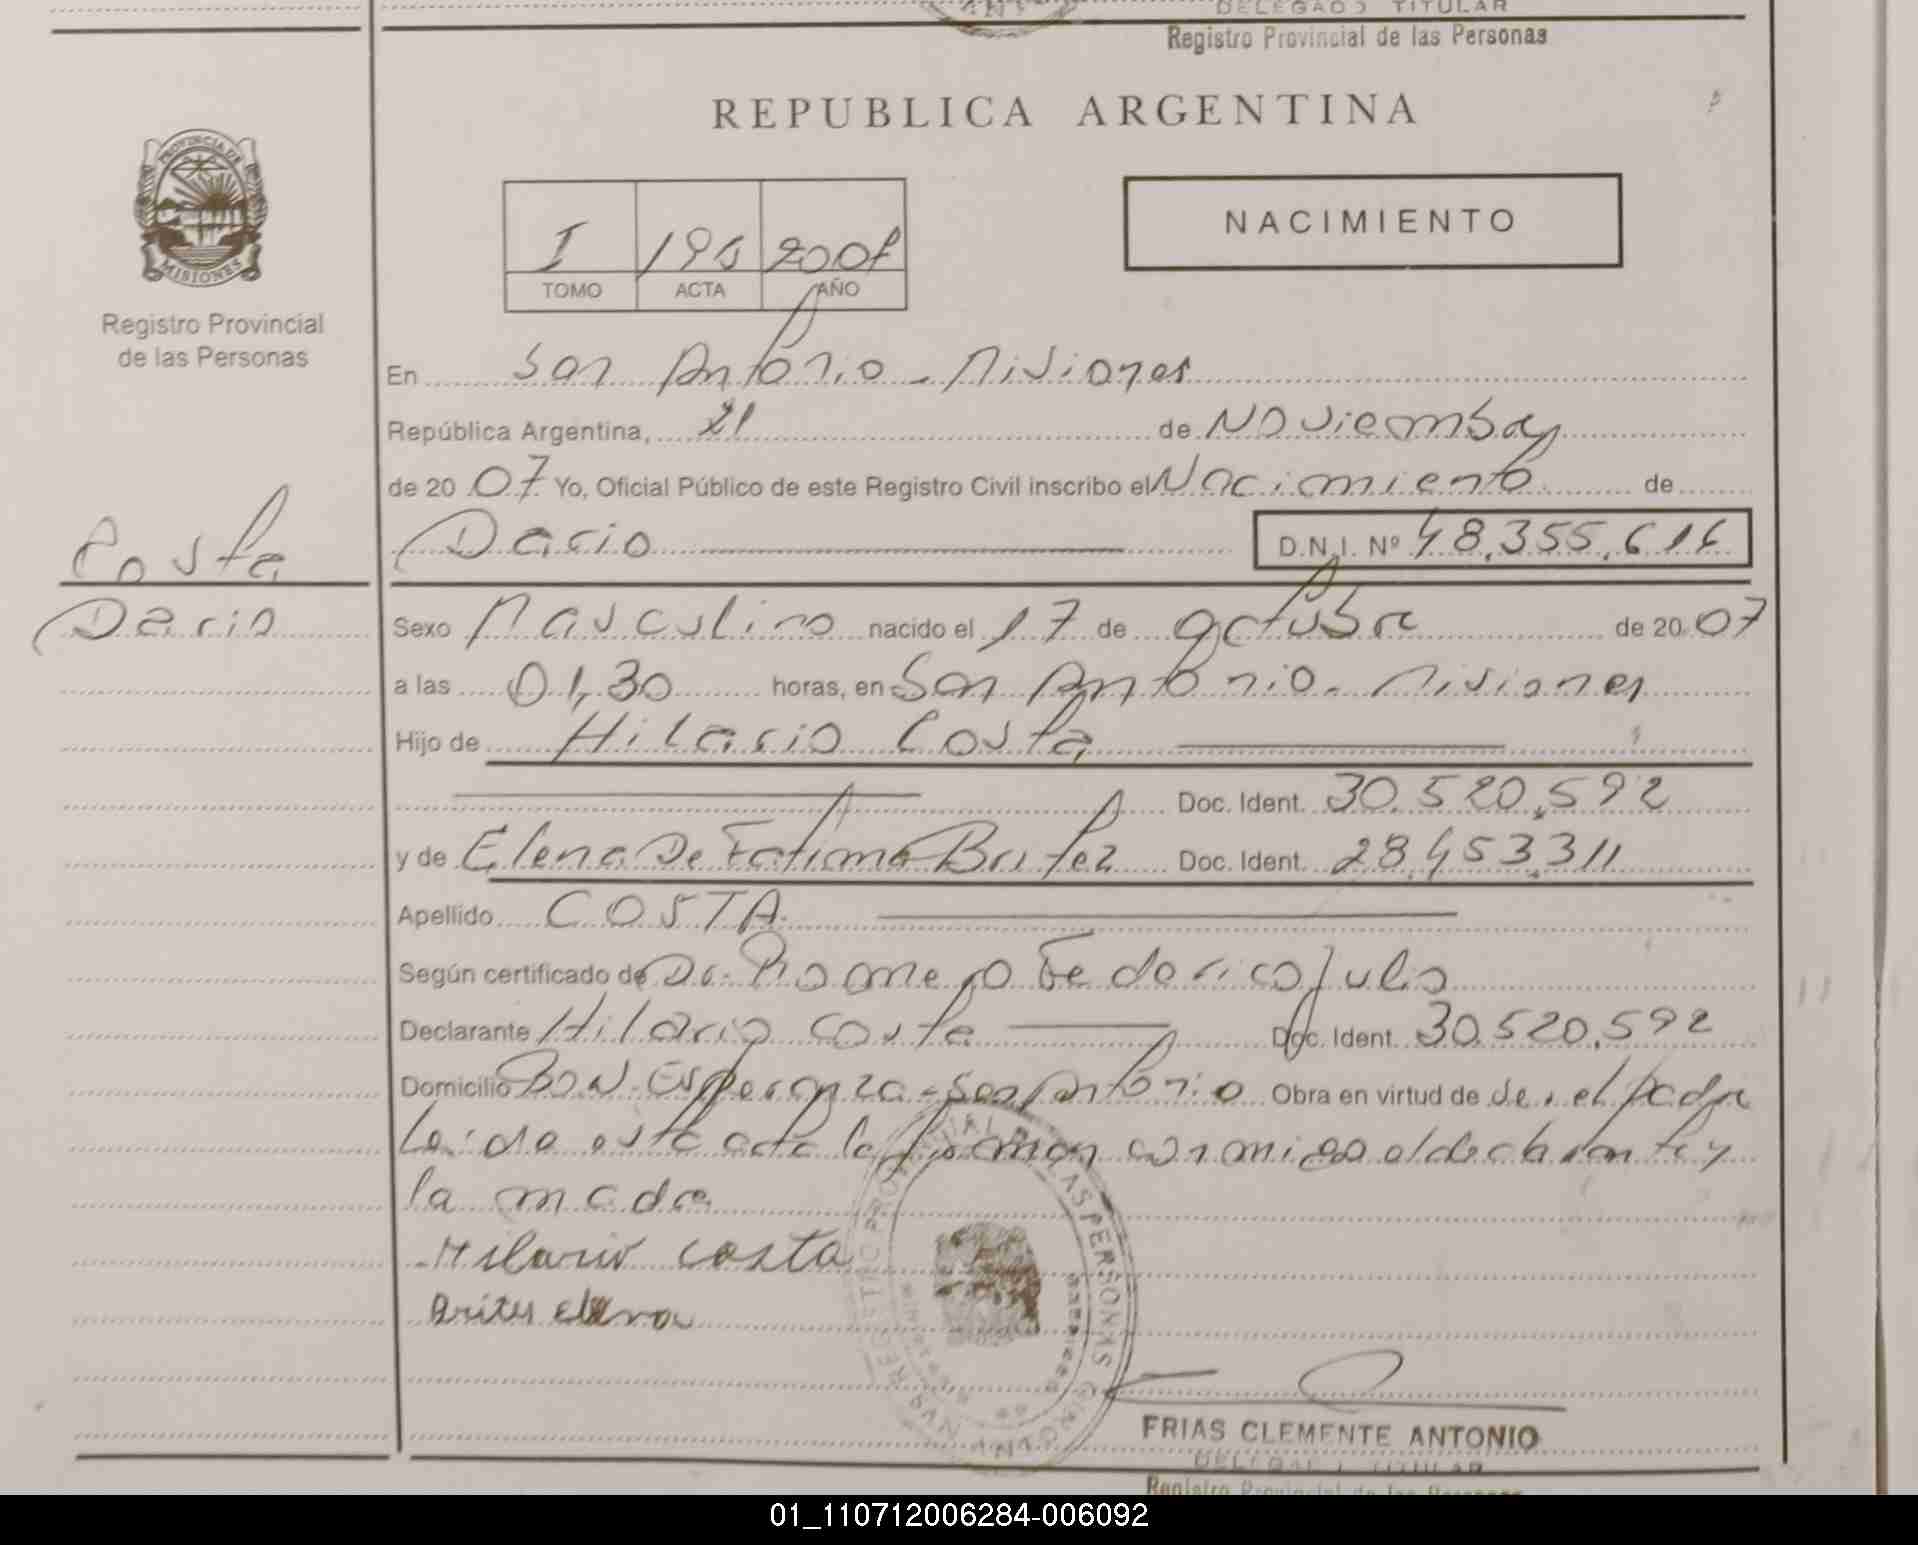 DELEGADO TITULAR
Registro Provincial de las Personas
REPUBLICA ARGENTINA
PROVINCIA DE
MISIONES
Registro Provincial
de las Personas
I 2007
TOMO ACTA AÑO
NACIMIENTO
En San Antonio - Misiones
República Argentina, 21 de Noviembre
de 20 07 Yo, Oficial Público de este Registro Civil inscribo el Nacimiento de
Dario D.N.I. Nº 48.355.616
Costa
Dario
Sexo Masculino nacido el 17 de octubre de 20 07
a las 01,30 horas, en San Antonio - Misiones
Hijo de Hilario Costa
Doc. Ident. 30.520.592
y de Elena De Fatima Britez Doc. Ident. 28.453.311
Apellido COSTA
Según certificado de Dr. Romero Federico Julio
Declarante Hilario Costa Doc. Ident. 30.520.592
Domicilio Esperanza - San Antonio Obra en virtud de ser el padre
Leida esta acta la firman conmigo el declarante y
la madre
Hilario costa
Britez Elena
REGISTRO PROVINCIAL DE LAS PERSONAS
FRIAS CLEMENTE ANTONIO
DELEGADO TITULAR
Registro Provincial de las Personas
01_110712006284-006092